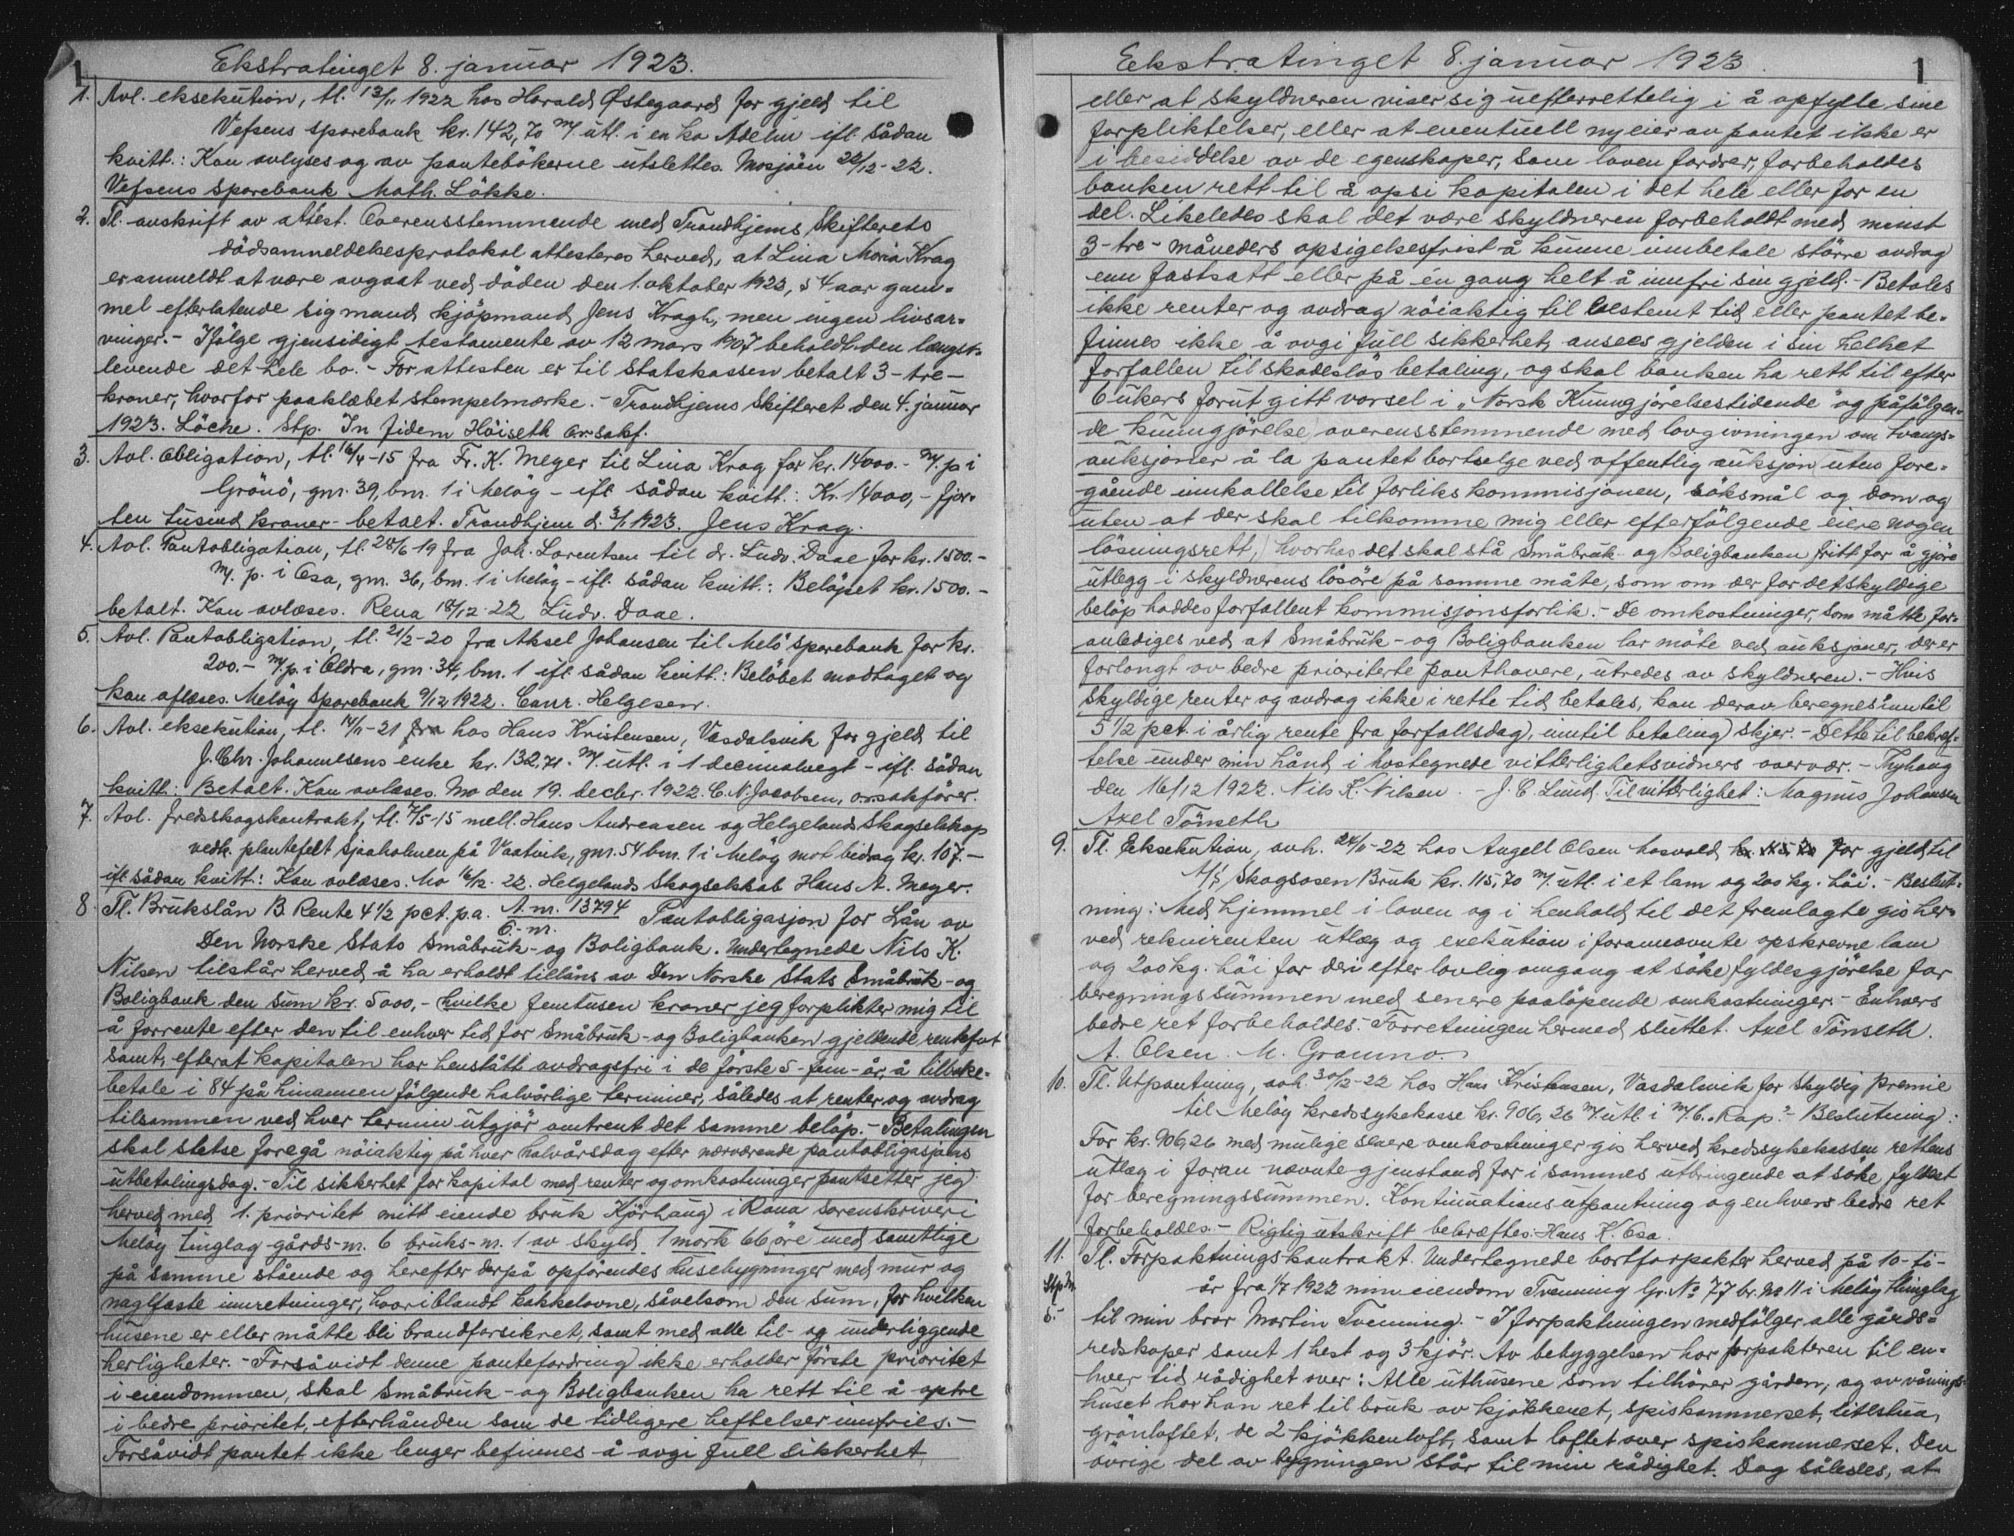 Ekstratinget 8. januar 1923.
1
1. Avl. eksekution, tl. 13/11 1922 hos Harald Østegaard for gjeld til
Vefsens sparebank kr. 142,70 m/ utl. i en ku Adelin ifl. sådan
kvitt.: Kan avlyses og av pantebökerne utslettes. Mosjöen 22/12-22.
Vefsens sparebank Math. Lökke.
2. Tl. avskrift av attest. Overensstemmende med Trondhjems Skifterets
dödsanmeldelsesprotokol attesteres herved, at Lina Maria Krag
er anmeldt at være avgaat ved döden den 1. oktober 1923, 54 aar gam-
mel efterlatende sig mand kjöpmand Jens Kragh, men ingen livsar-
vinger. - Ifölge gjensidigt testamente av 12 mars 1907 beholdt den længst-
levende det hele bo. - For attesten er til Statskassen betalt 3 - tre -
kroner, hvorfor paaklæbet stempelmærke. - Trondhjems Skifteret den 4. januar
1923. Löche. Stp. In fidem Höiseth o.r.sakf.
3. Avl. Obligation, tl. 16/4-15 fra Fr. K. Meyer til Lina Krag for kr. 14000.- m/. p i
Grönö, gnr. 39, bnr. 1 i Melöy - ifl. sådan kvitt.: Kr. 14000,- fjor-
ten tusind kroner - betalt. Trondhjem d. 3/1 1923. Jens Krag.
4. Avl. Pantobligation, tl. 28/6 19 fra Joh. Lorentsen til dr. Ludv. Daae for kr. 1500.-
m/. p. i Osa, gnr. 36, bnr. 1 i Melöy - ifl. sådan kvitt.: Belöpet kr. 1500.-
betalt. Kan avlæses. Rena 18/12-22 Ludv. Daae.
5. Avl. Pantobligation, tl. 21/2-20 fra Aksel Johansen til Melö sparebank for kr.
200.- m/.p. i Oldra, gnr. 34, bnr. 1 ifl. sådan kvitt.: Belöbet modtaget og
kan aflæses. Melöy Sparebank 9/12 1922. Conr. Helgesen.
6. Avl. eksekution, tl. 14/11-21 fra hos Hans Kristensen, Vasdalsvik for gjeld til
J. Chr. Johannesens enke kr. 132,71. m/ utl. i 1 decimalvegt - ifl. sådan
kvitt.: Betalt. Kan avlæses. Mo den 19. decbr. 1922. C. N. Jacobsen, o.r.sakförer.
7. Avl. fredskogskontrakt, tl. 7/5-15 mell. Hans Andreasen og Helgelands Skogselskap
vedk. plantefelt Sjaaholmen på Vaatvik, gnr. 54 bnr. 1 i Melöy mot bidrag kr. 107.-
ifl. sådan kvitt.: Kan avlæses. Mo 16/12-22. Helgelands Skogselskab Hans A. Meyer.
8. Tl. Brukslån B. Rente 4 1/2 pct. p.a. A. nr. 13794 Pantobligasjon for Lån av
C. nr.
Den Norske Stats Småbruk- og Boligbank. Undertegnede Nils K.
Nilsen tilstår herved å ha erholdt tillåns av Den Norske Stats Småbruk- og
Boligbank den sum kr. 5000,- hvilke femtusen kroner jeg forplikter mig til
å forrente efter den til enhver tid for Småbruk- og Boligbanken gjeldende rentefot
samt, efterat kapitalen har henstått avdragsfri i de förste 5- fem - år, å tilbake-
betale i 84 på hinannen fölgende halvårlige terminer, således at renter og avdrag
tilsammen ved hver termin utgjör omtrent det samme belöp. - Betalingen
skal stetse foregå nöiaktig på hver halvårsdag efter nærværende pantobligasjons
utbetalingsdag. - Til sikkerhet for kapital med renter og omkostninger pantsetter jeg
herved med 1. prioritet mitt eiende bruk Kjörhaug i Rana Sorenskriveri
Melöy Tinglag gårds-nr. 6 bruks-nr. 1 av skyld 1 mark 66 öre med samtlige
på samme stående og herefter derpå opförendes husebygninger med mur og
naglfaste innretninger, hvoriblandt kakkelovne, såvelsom den sum, for hvilken
husene er eller måtte bli brandforsikret, samt med alle til- og underliggende
herligheter. - Forsåvidt denne pantefordring ikke erholder förste prioritet
i eiendommen, skal Småbruk- og Boligbanken ha rett til å optre
i bedre prioritet, efterhånden som de tidligere heftelser innfries. -
Forsåvidt pantet ikke lenger befinnes å avgi full sikkerhet,
Ekstratinget 8. januar 1923.
1
eller at skyldneren viser sig uefterrettelig i å opfylle sine
forpliktelser, eller at eventuell ny eier av pantet ikke er
i besiddelse av de egenskaper, som loven fordrer, forbeholdes
banken rett til å opsi kapitalen i det hele eller for en
del. Likeledes skal det være skyldneren forbeholdt med minst
3 - tre - måneders opsigelsesfrist å kunne innbetale större avdrag
enn fastsatt eller på én gang helt å innfri sin gjeld. - Betales
ikke renter og avdrag nöiaktig til bestemt tid eller pantet be-
finnes ikke å avgi full sikkerhet, ansees gjelden i sin helhet
forfallen til skadeslös betaling, og skal banken ha rett til efter
6 ukers forut gitt varsel i "Norsk Kunngjörelsestidende" og påfölgen-
de kunngjörelse overensstemmende med lovgivningen om tvangs-
auksjoner å la pantet bortselge ved offentlig auksjon uten fore-
gående innkallelse til forlikskommisjonen, söksmål og dom og
uten at der skal tilkomme mig eller efterfölgende eiere nogen
lösningsrett, hvorhos det skal stå Småbruk- og Boligbanken fritt for å gjöre
utlegg i skyldnerens lösöre på samme måte, som om der for det skyldige
belöp haddes forfallent kommisjonsforlik. - De omkostninger, som måtte for-
anlediges ved, at Småbruk- og Boligbanken lar möte ved auksjoner, der er
forlangt av bedre prioriterte panthavere, utredes av skyldneren. - Hvis
skyldige renter og avdrag ikke i rette tid betales, kan derav beregnes inntil
5 1/2 pct. i årlig rente fra forfallsdag, inntil betaling skjer. - Dette til bekref-
telse under min hånd i hostegnede vitterlighetsvidners overvær. - Thyhaug
den 16/12 1922. Nils K. Nilsen. - J. C. Lund. Til vitterlighet: Magnus Johansen
Axel Tönseth
9. Tl. Eksekution, avh. 24/11-22 hos Angell Olsen Mosvold for gjeld til
A/S Skogsosen Bruk kr. 115,70 m/. utl. i et lam og 200 kg. höi. - Beslut-
ning: Med hjemmel i loven og i henhold til det fremlagte gis her-
ved rekvirenten utlæg og exekution i foranævnte opskrevne lam
og 200 kg. höi for deri efter lovlig omgang at söke fyldesgjörelse for
beregningssummen med senere paalöpende omkostninger. - Enhvers
bedre ret forbeholdes. Forretningen hermed sluttet. Axel Tönseth.
A. Olsen. M. Gramno.
10. Tl. Utpantning, avh. 30/12-22 hos Hans Kristensen, Vasdalsvik for skyldig premie
til Melöy kredssykekasse kr. 906,26 m/ utl i m/b. "Rap". - Beslutning:
For kr. 906,26 med mulige senere omkostninger gis herved kredssykekassen rettens
utlæg i foran nævnte gjenstand for i sammes utbringende at söke fyldest
for beregningssummen. Kontinuationsutpantning og enhvers bedre ret
forbeholdes. - Rigtig utskrift bekræftes: Hans K. Osa.
11. Tl. Forpaktningskontrakt. Undertegnede bortforpakter herved på 10 - ti -
Stp. m.
5.-
år fra 1/7 1922 min eiendom Tvenning Gr. No 77 br. No 11 i Melöy tinglag
til min bror Martin Tvenning. - I forpaktningen medfölger alle gårds-
redskaper samt 1 hest og 3 kjör. Av bebyggelsen har forpakteren til en-
hver tid rådighet over: Alle uthusene som tilhörer gården, og av vånings-
huset har han ret til bruk av kjökkenet, spiskammerset, litlstua,
grönloftet, de 2 kjökkenloft, samt loftet over spiskammerset. Den
övrige del av bygningen står til min rådighet. Dog således, at